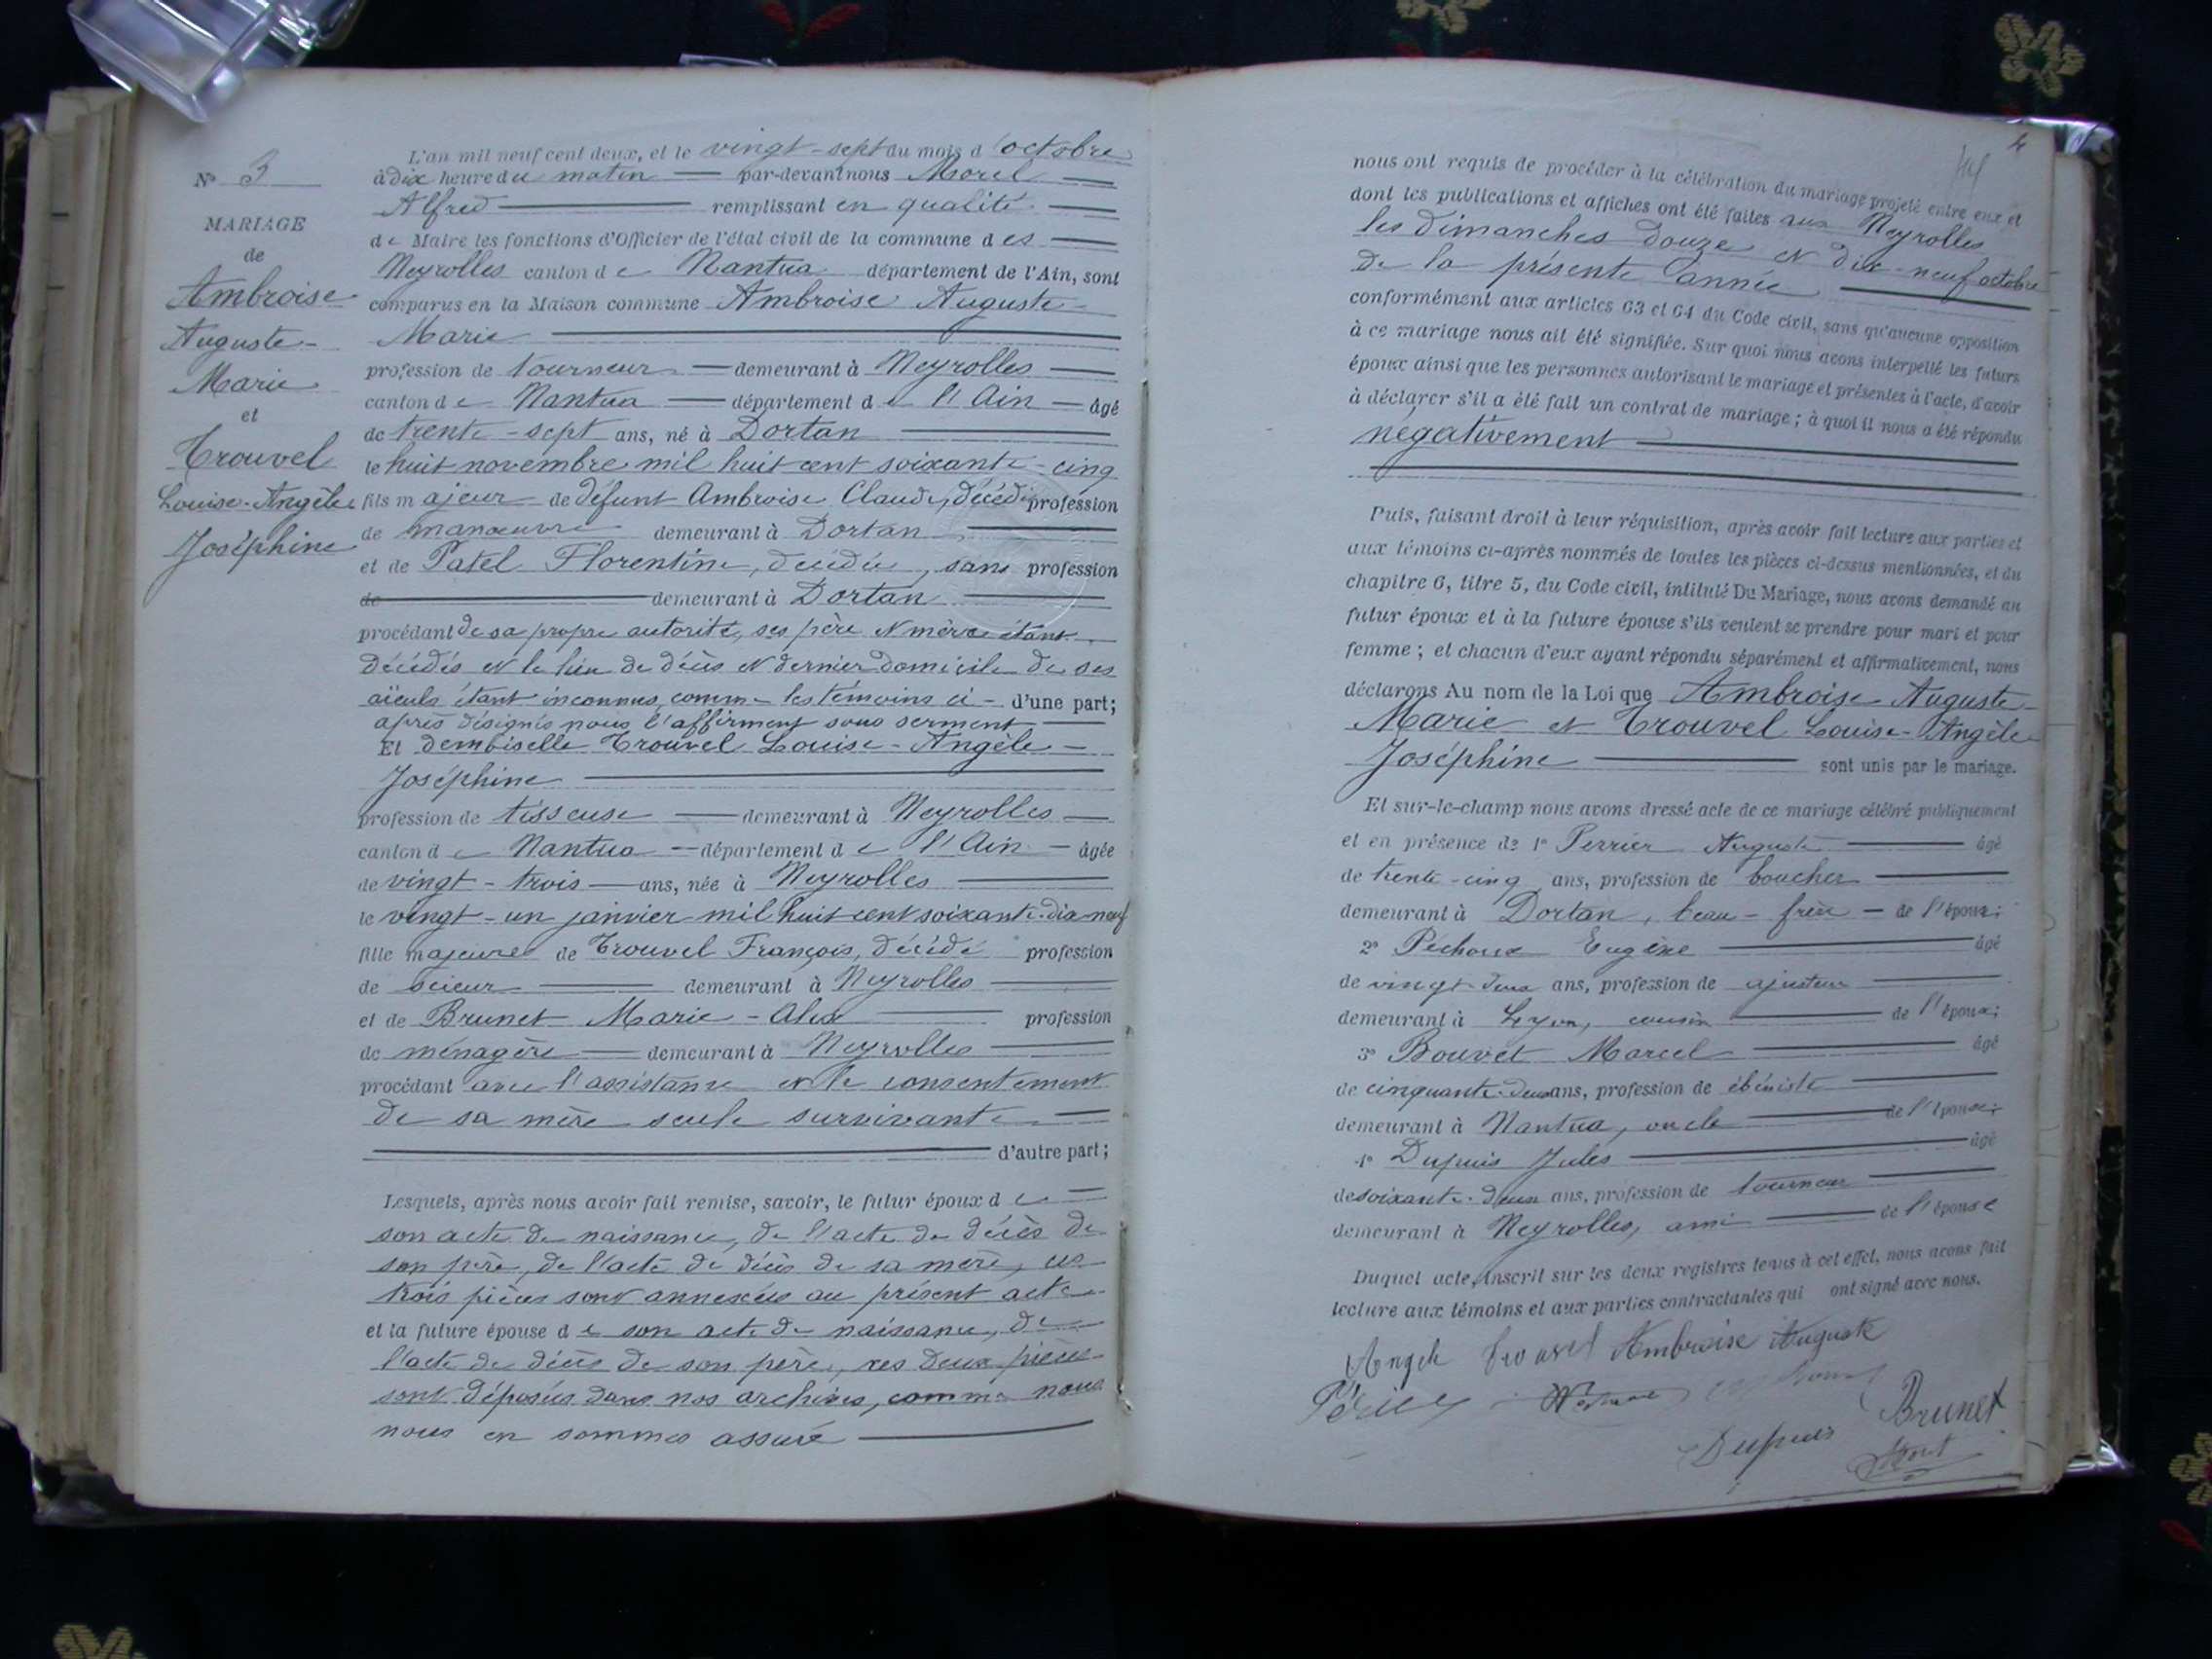 N° 3
MARIAGE
de
Ambroise
Auguste-
Marie
et
Trouvel
Louise-Angèle
Joséphine
L'an mil neuf cent deux, et le vingt-sept du mois d'octobre
à dix heure du matin par-devant nous Morel
Alfred remplissant en qualité
de Maire les fonctions d'Officier de l'état civil de la commune des
Neyrolles canton de Nantua département de l'Ain, sont
comparus en la Maison commune Ambroise Auguste-
Marie
profession de tourneur demeurant à Neyrolles
canton de Nantua département de l'Ain âgé
de trente-sept ans, né à Dortan
le huit novembre mil huit cent soixante-cinq
fils majeur de défunt Ambroise Claude, décédé profession
de manœuvre demeurant à Dortan
et de Patel Florentine, décédée, sans profession
de demeurant à Dortan
procédant de sa propre autorité, ses père et mère étant
décédés et le lieu de décès et dernier domicile de ses
aïeuls étant inconnus, comme les témoins ci- d'une part;
après désignés nous l'affirment sous serment
Et demoiselle Trouvel Louise-Angèle-
Joséphine
profession de tisseuse demeurant à Neyrolles
canton de Nantua département de l'Ain âgée
de vingt-trois ans, née à Neyrolles
le vingt-un janvier mil huit cent soixante-dix-neuf
fille majeure de Trouvel François, décédé profession
de scieur demeurant à Neyrolles
et de Brunet Marie-Alix profession
de ménagère demeurant à Neyrolles
procédant avec l'assistance et le consentement
de sa mère seule survivante
d'autre part;
Lesquels, après nous avoir fait remise, savoir, le futur époux de
son acte de naissance, de l'acte de décès de
son père, de l'acte de décès de sa mère, ces
trois pièces sont annexées au présent acte
et la future épouse de son acte de naissance, de
l'acte de décès de son père, ces deux pièces
sont déposées dans nos archives, comme nous
nous en sommes assuré
4
nous ont requis de procéder à la célébration du mariage projeté entre eux et
dont les publications et affiches ont été faites aux Neyrolles
les dimanches douze et dix-neuf octobre
de la présente année
conformément aux articles 63 et 64 du Code civil, sans qu'aucune opposition
à ce mariage nous ait été signifiée. Sur quoi nous avons interpellé les futurs
époux ainsi que les personnes autorisant le mariage et présentes à l'acte, d'avoir
à déclarer s'il a été fait un contrat de mariage; à quoi il nous a été répondu
négativement
Puis, faisant droit à leur réquisition, après avoir fait lecture aux parties et
aux témoins ci-après nommés de toutes les pièces ci-dessus mentionnées, et du
chapitre 6, titre 5, du Code civil, intitulé Du Mariage, nous avons demandé au
futur époux et à la future épouse s'ils veulent se prendre pour mari et pour
femme; et chacun d'eux ayant répondu séparément et affirmativement, nous
déclarons Au nom de la Loi que Ambroise Auguste-
Marie et Trouvel Louise-Angèle
Joséphine sont unis par le mariage.
Et sur-le-champ nous avons dressé acte de ce mariage célébré publiquement
et en présence de 1° Perrier Auguste âgé
de trente-cinq ans, profession de boucher
demeurant à Dortan, beau-frère de l'époux;
2° Péchoux Eugène âgé
de vingt-deux ans, profession de ajusteur
demeurant à Lyon, cousin de l'époux;
3° Bouvet Marcel âgé
de cinquante-deux ans, profession de ébéniste
demeurant à Nantua, oncle de l'épouse;
4° Dupuis Jules âgé
de soixante-deux ans, profession de tourneur
demeurant à Neyrolles, ami de l'épouse
Duquel acte, inscrit sur les deux registres tenus à cet effet, nous avons fait
lecture aux témoins et aux parties contractantes qui ont signé avec nous.
Angèle Trouvel Ambroise Auguste
Brunet
Dupuis